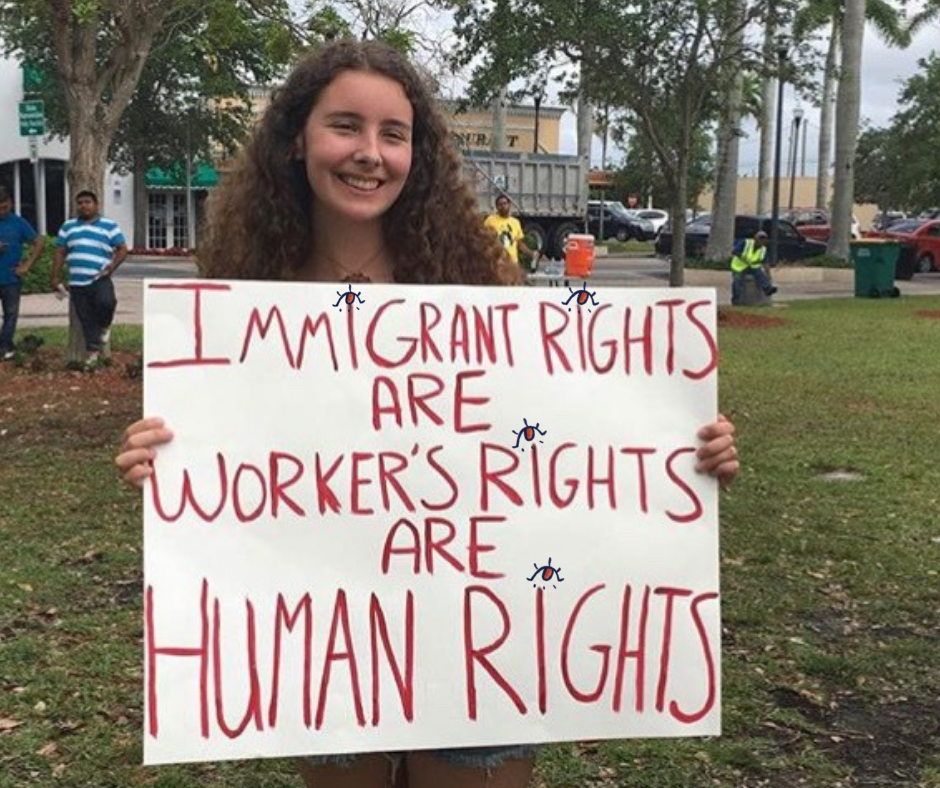 IMMIGRANT RIGHTS
ARE
WORKER'S RIGHTS
ARE
HUMAN RIGHTS